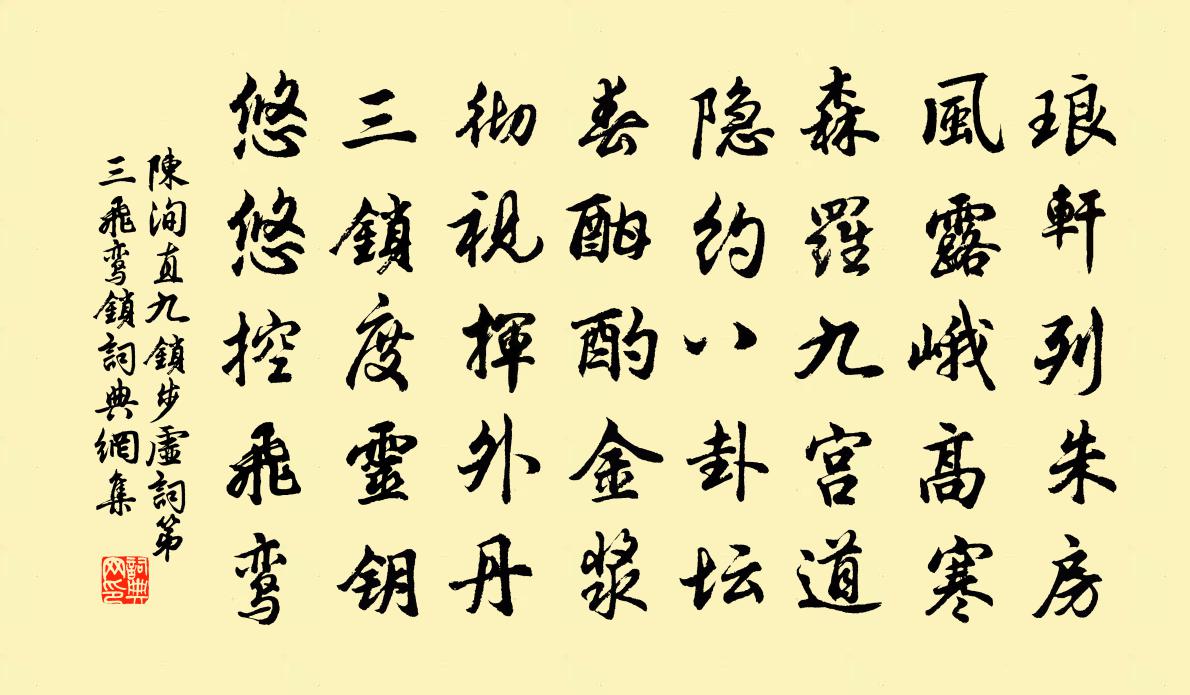 琅軒列朱房
風露峨高寒
森羅九宮道
隐約八卦坛
春酣酌金漿
彻視揮外丹
三鎖度靈钥
悠悠控飛鸾
陳洵直九鎖步虛詞第
三飛鸾鎖詞典網集
詞典網印